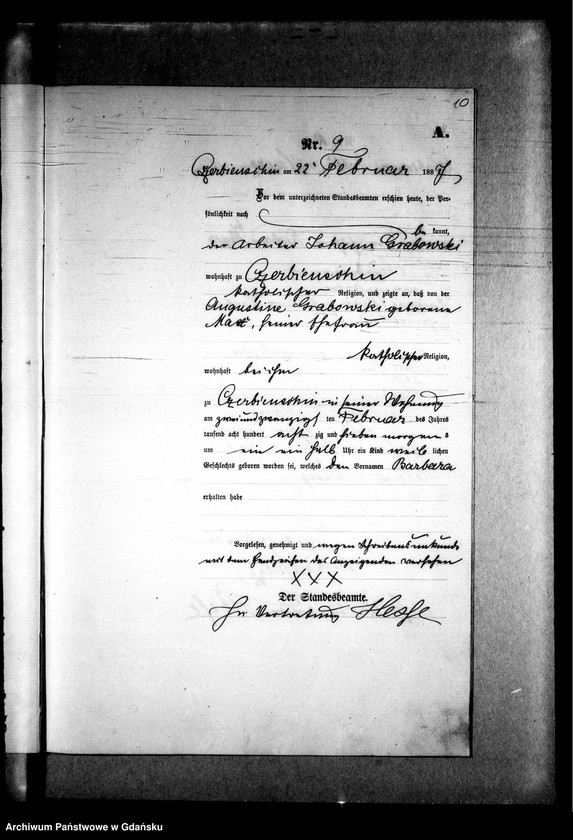 10
A.
Nr. 9
Czerbienschin am 22ᵗ Februar 1887
Vor dem unterzeichneten Standesbeamten erschien heute, der Per-
sönlichkeit nach
be kannt,
der Arbeiter Johann Grabowski
wohnhaft zu Czerbienschin
katholischer Religion, und zeigte an, daß von der
Augustine Grabowski geborene
seiner Ehefrau
katholischer Religion,
wohnhaft bei ihm
zu Czerbienschin in seiner Wohnung
am zweiundzwanzigst ten Februar des Jahres
tausend acht hundert acht zig und sieben morgens
um ein ein halb Uhr ein Kind weib lichen
Geschlechts geboren worden sei, welches den Vornamen Barbara
erhalten habe
Vorgelesen, genehmigt und wegen Schreibensunkunde
mit dem Handzeichen des Anzeigenden versehen
XXX
Der Standesbeamte.
In Vertretung Hesse
Archiwum Państwowe w Gdańsku